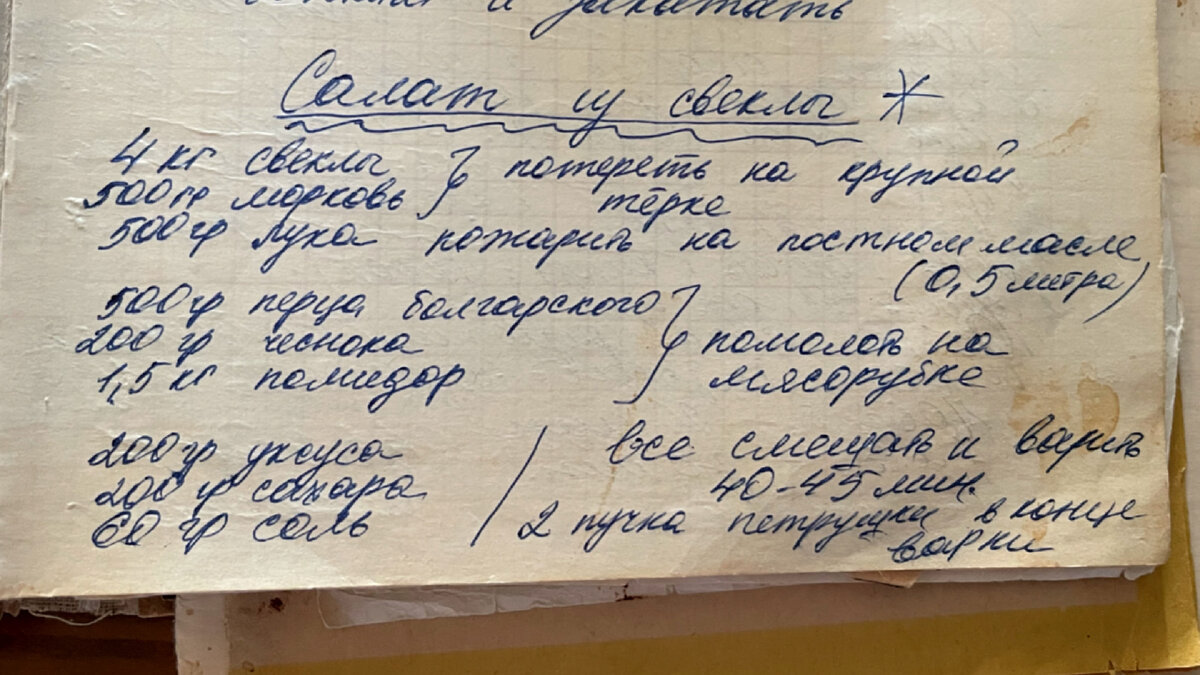 и закатать
Салат из свеклы *
4 кг свеклы } потереть на крупной
500 гр морковь } тёрке
500 гр лука пожарить на постном масле
(0,5 литра)
500 гр перца болгарского
200 гр чеснока } помолоть на
1,5 кг помидор мясорубке
200 гр уксуса / все смещать и варить
200 гр сахара 40-45 мин.
60 гр соль / 2 пучка петрушки в конце
варки